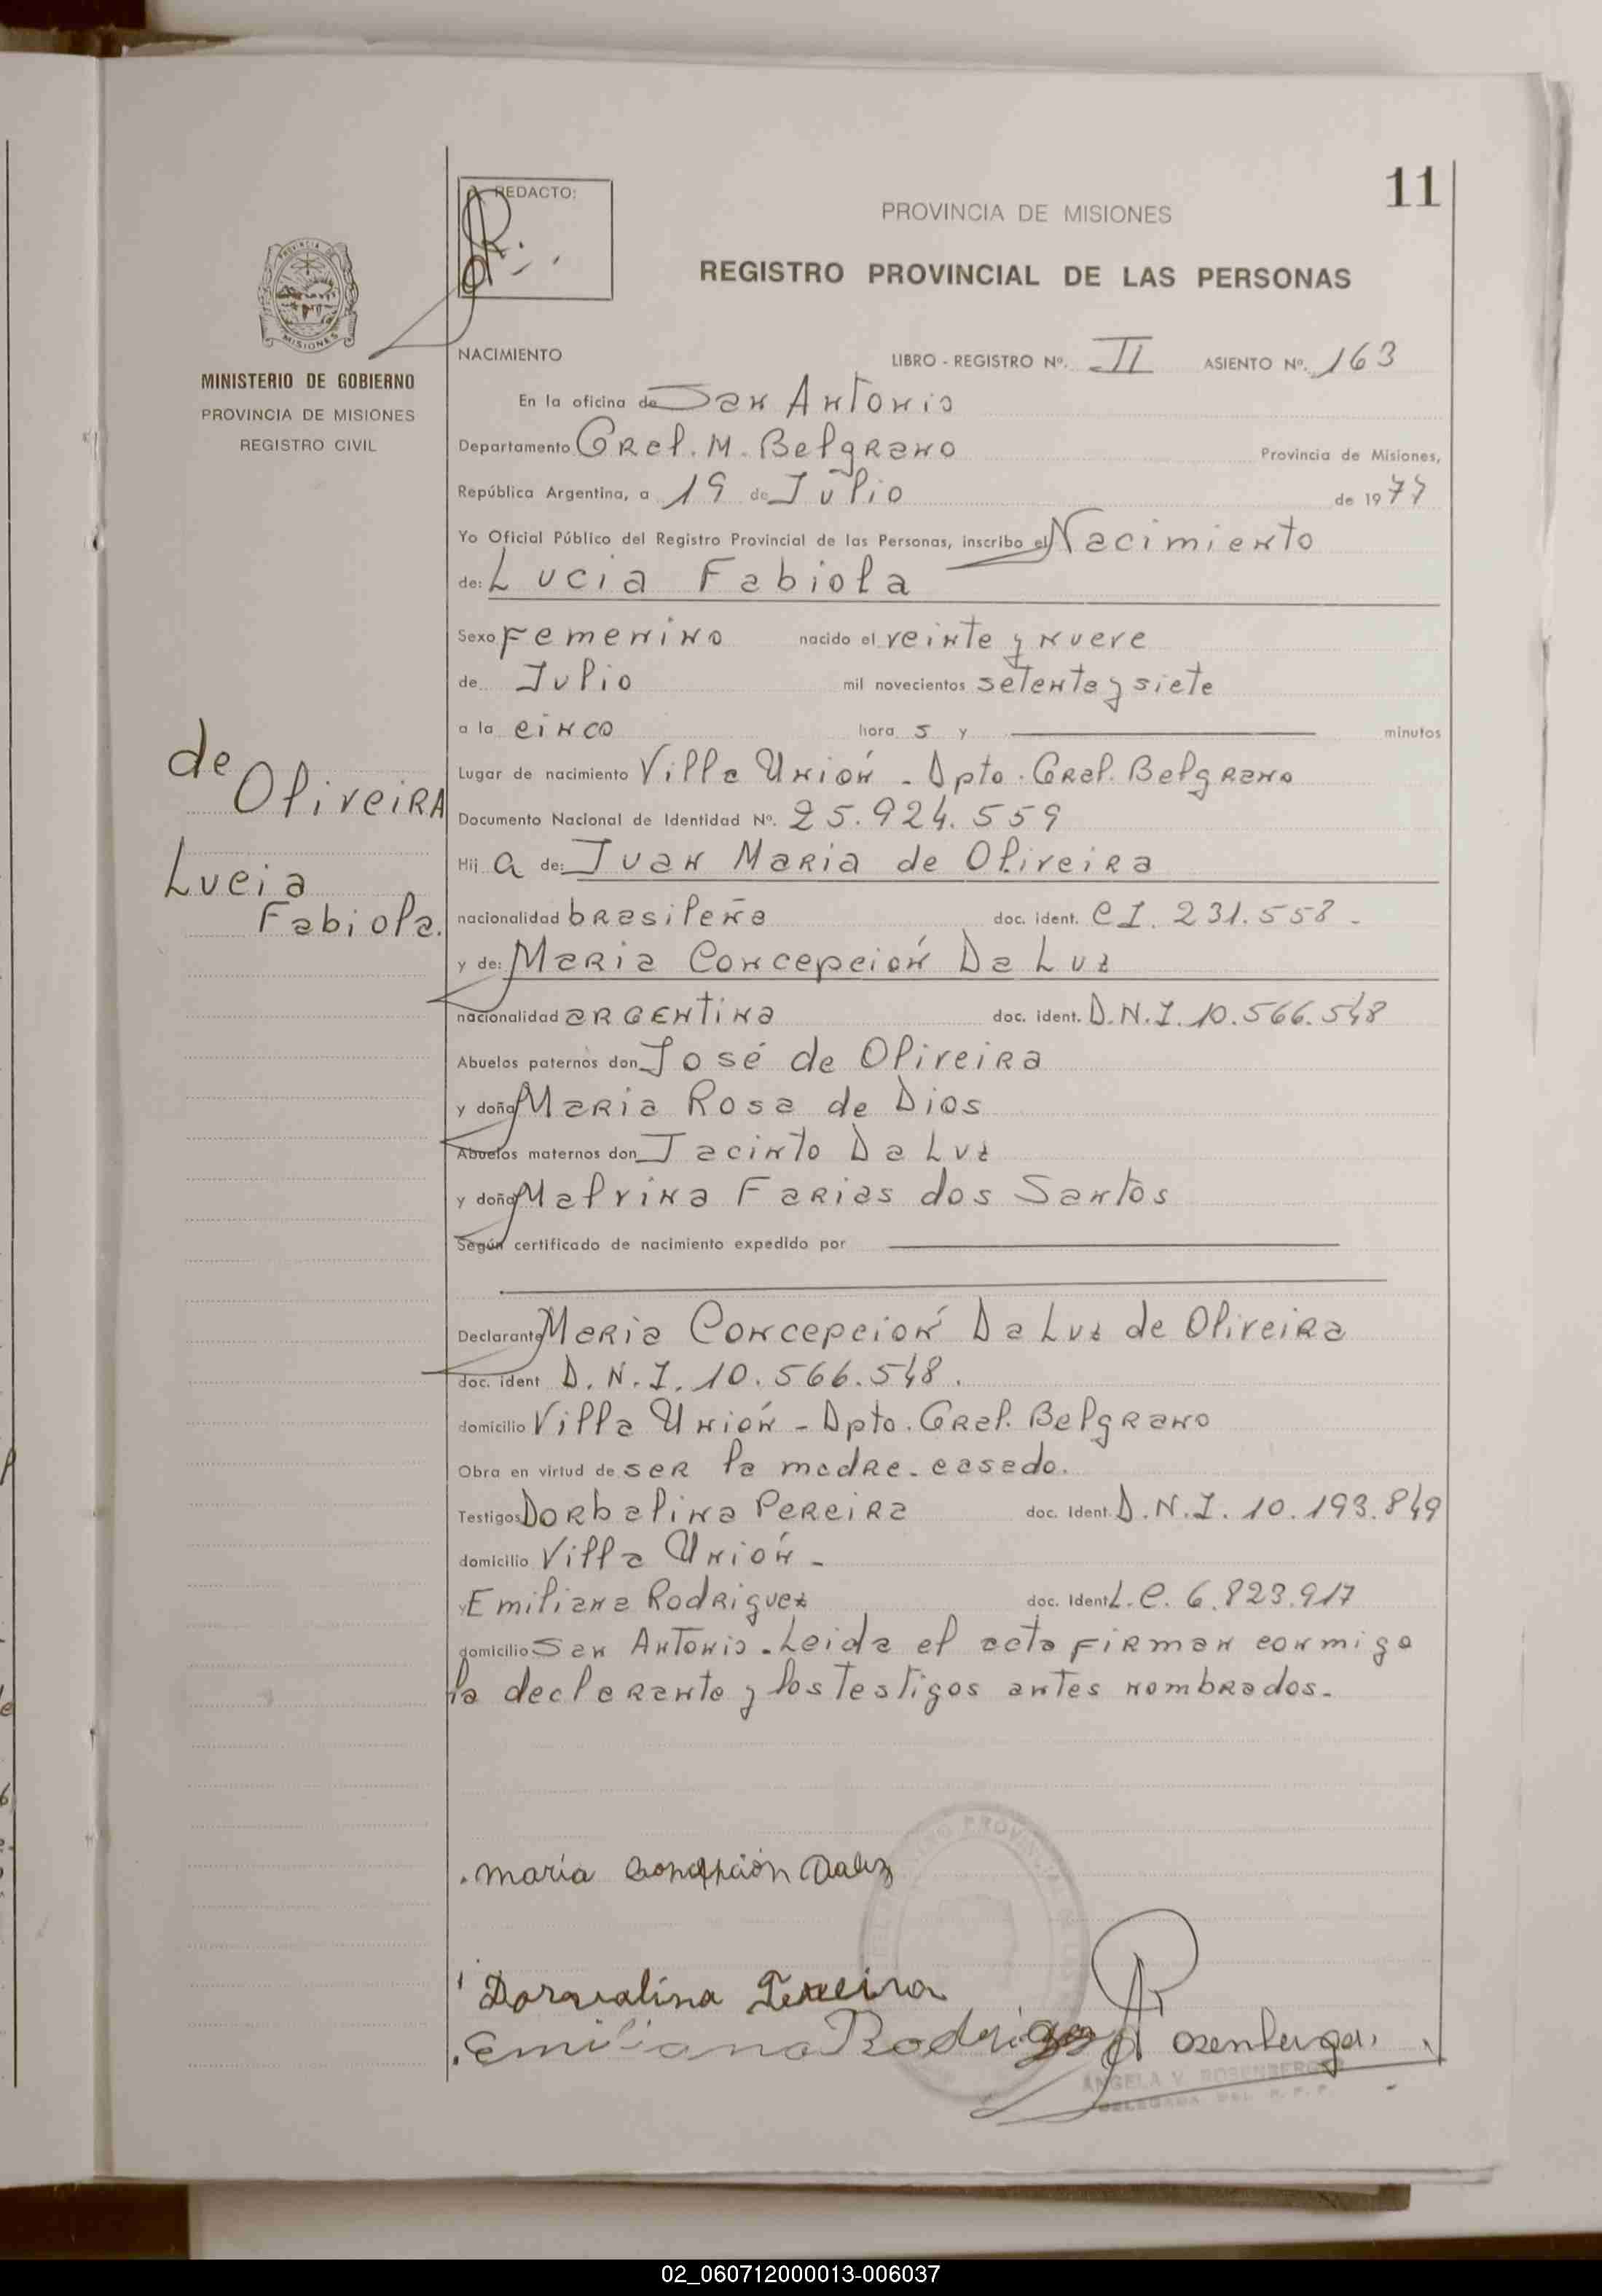 11
REDACTO:
PROVINCIA DE MISIONES
REGISTRO PROVINCIAL DE LAS PERSONAS
PROVINCIA DE
MISIONES
MINISTERIO DE GOBIERNO
PROVINCIA DE MISIONES
REGISTRO CIVIL
NACIMIENTO LIBRO - REGISTRO Nº. II ASIENTO Nº. 163
En la oficina de San Antonio
Departamento Gral. M. Belgrano Provincia de Misiones,
República Argentina, a 19 de Julio de 1977
Yo Oficial Público del Registro Provincial de las Personas, inscribo el Nacimiento
de: Lucia Fabiola
Sexo Femenino nacido el veinte y nueve
de Julio mil novecientos setenta y siete
a la cinco hora 5 y minutos
de Oliveira
Lucia
Fabiola.
Lugar de nacimiento Villa Unión - Dpto. Gral. Belgrano
Documento Nacional de Identidad Nº. 25.924.559
Hij a de: Juan Maria de Oliveira
nacionalidad brasileña doc. ident. CI. 231.558.
y de: Maria Concepción Da Luz
nacionalidad argentina doc. ident. D.N.I. 10.566.548
Abuelos paternos don José de Oliveira
y doña Maria Rosa de Dios
Abuelos maternos don Jacinto Da Luz
y doña Malvina Farias dos Santos
Según certificado de nacimiento expedido por
Declarante Maria Concepción Da Luz de Oliveira
doc. ident D.N.I. 10.566.548.
domicilio Villa Unión - Dpto. Gral. Belgrano
Obra en virtud de ser la madre - casado.
Testigos Dorbalina Pereira doc. Ident. D.N.I. 10.193.849
domicilio Villa Unión -
y Emiliana Rodriguez doc. Ident L.C. 6.823.917
domicilio San Antonio. Leida el acta firman conmigo
la declarante y los testigos antes nombrados.
María Concepción Daluz
Dorvalina Pereira
Emiliana Rodrigez
A Rosenberger
ANGELA V. ROSENBERGER
DELEGADA DEL R.P.P.
02_060712000013-006037